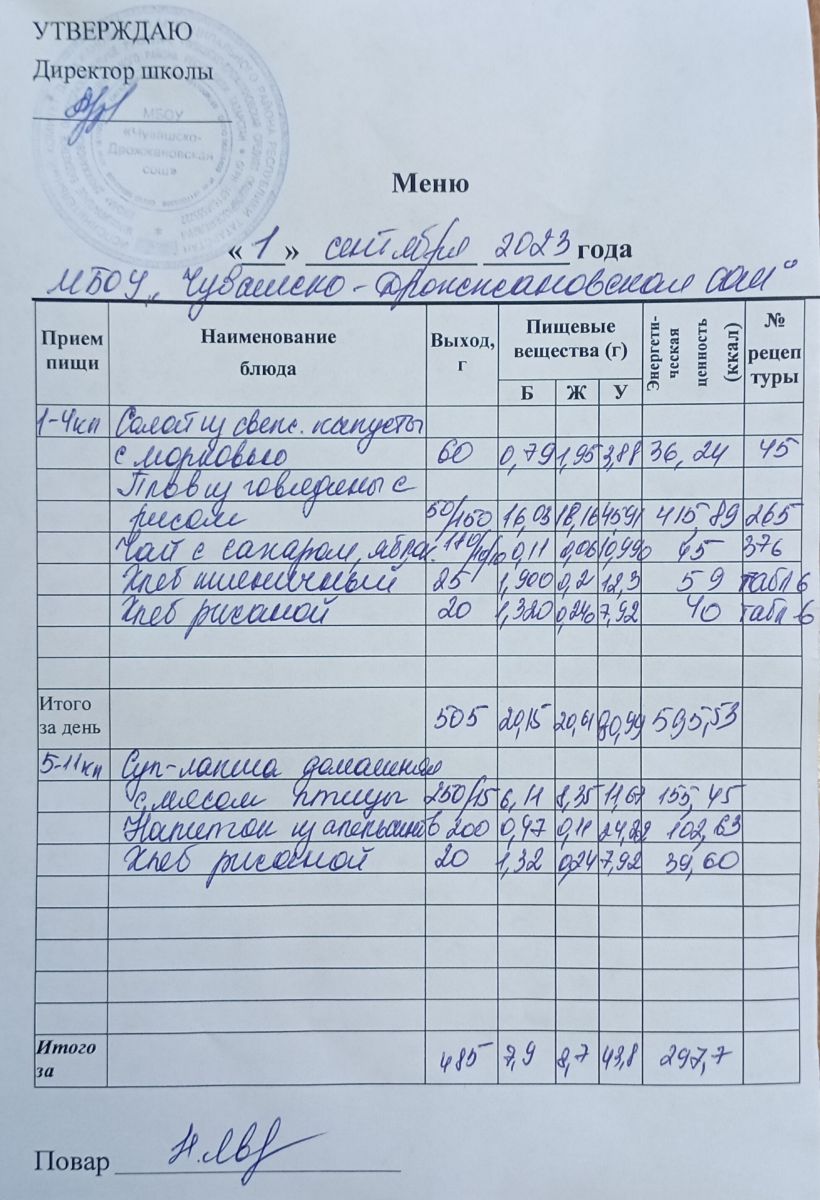 УТВЕРЖДАЮ
Директор школы
МБОУ
«Чувашско-
Дрожжановская
сош»
Меню
« 1 » сентября 2023 года
МБОУ „Чувашско-Дрожжановская сош"
Прием пищи Наименование блюда Выход, г Пищевые вещества (г) Б Ж У Энергети-ческая ценность (ккал) № рецептуры
1-4кл Салат из свеж. капусты
с морковью 60 0,79 1,95 3,88 36,24 45
Плов из говядины с
рисом 50/150 16,03 18,16 45,91 415,89 265
Чай с сахаром, яблок. 0,11 0,06 10,990 45 376
Хлеб пшеничный 25 1,900 0,2 12,3 59 табл 6
Хлеб ржаной 20 1,320 0,240 7,92 40 табл 6
Итого
за день 505 20,15 20,61 80,99 595,53
5-11кл Суп-лапша домашняя
с мясом птицы 250/15 6,11 8,35 11,67 155,45
Напиток из апельсинов 200 0,47 0,11 24,22 102,63
Хлеб ржаной 20 1,32 0,24 7,92 39,60
Итого
за 485 7,9 8,7 43,8 297,7
Повар